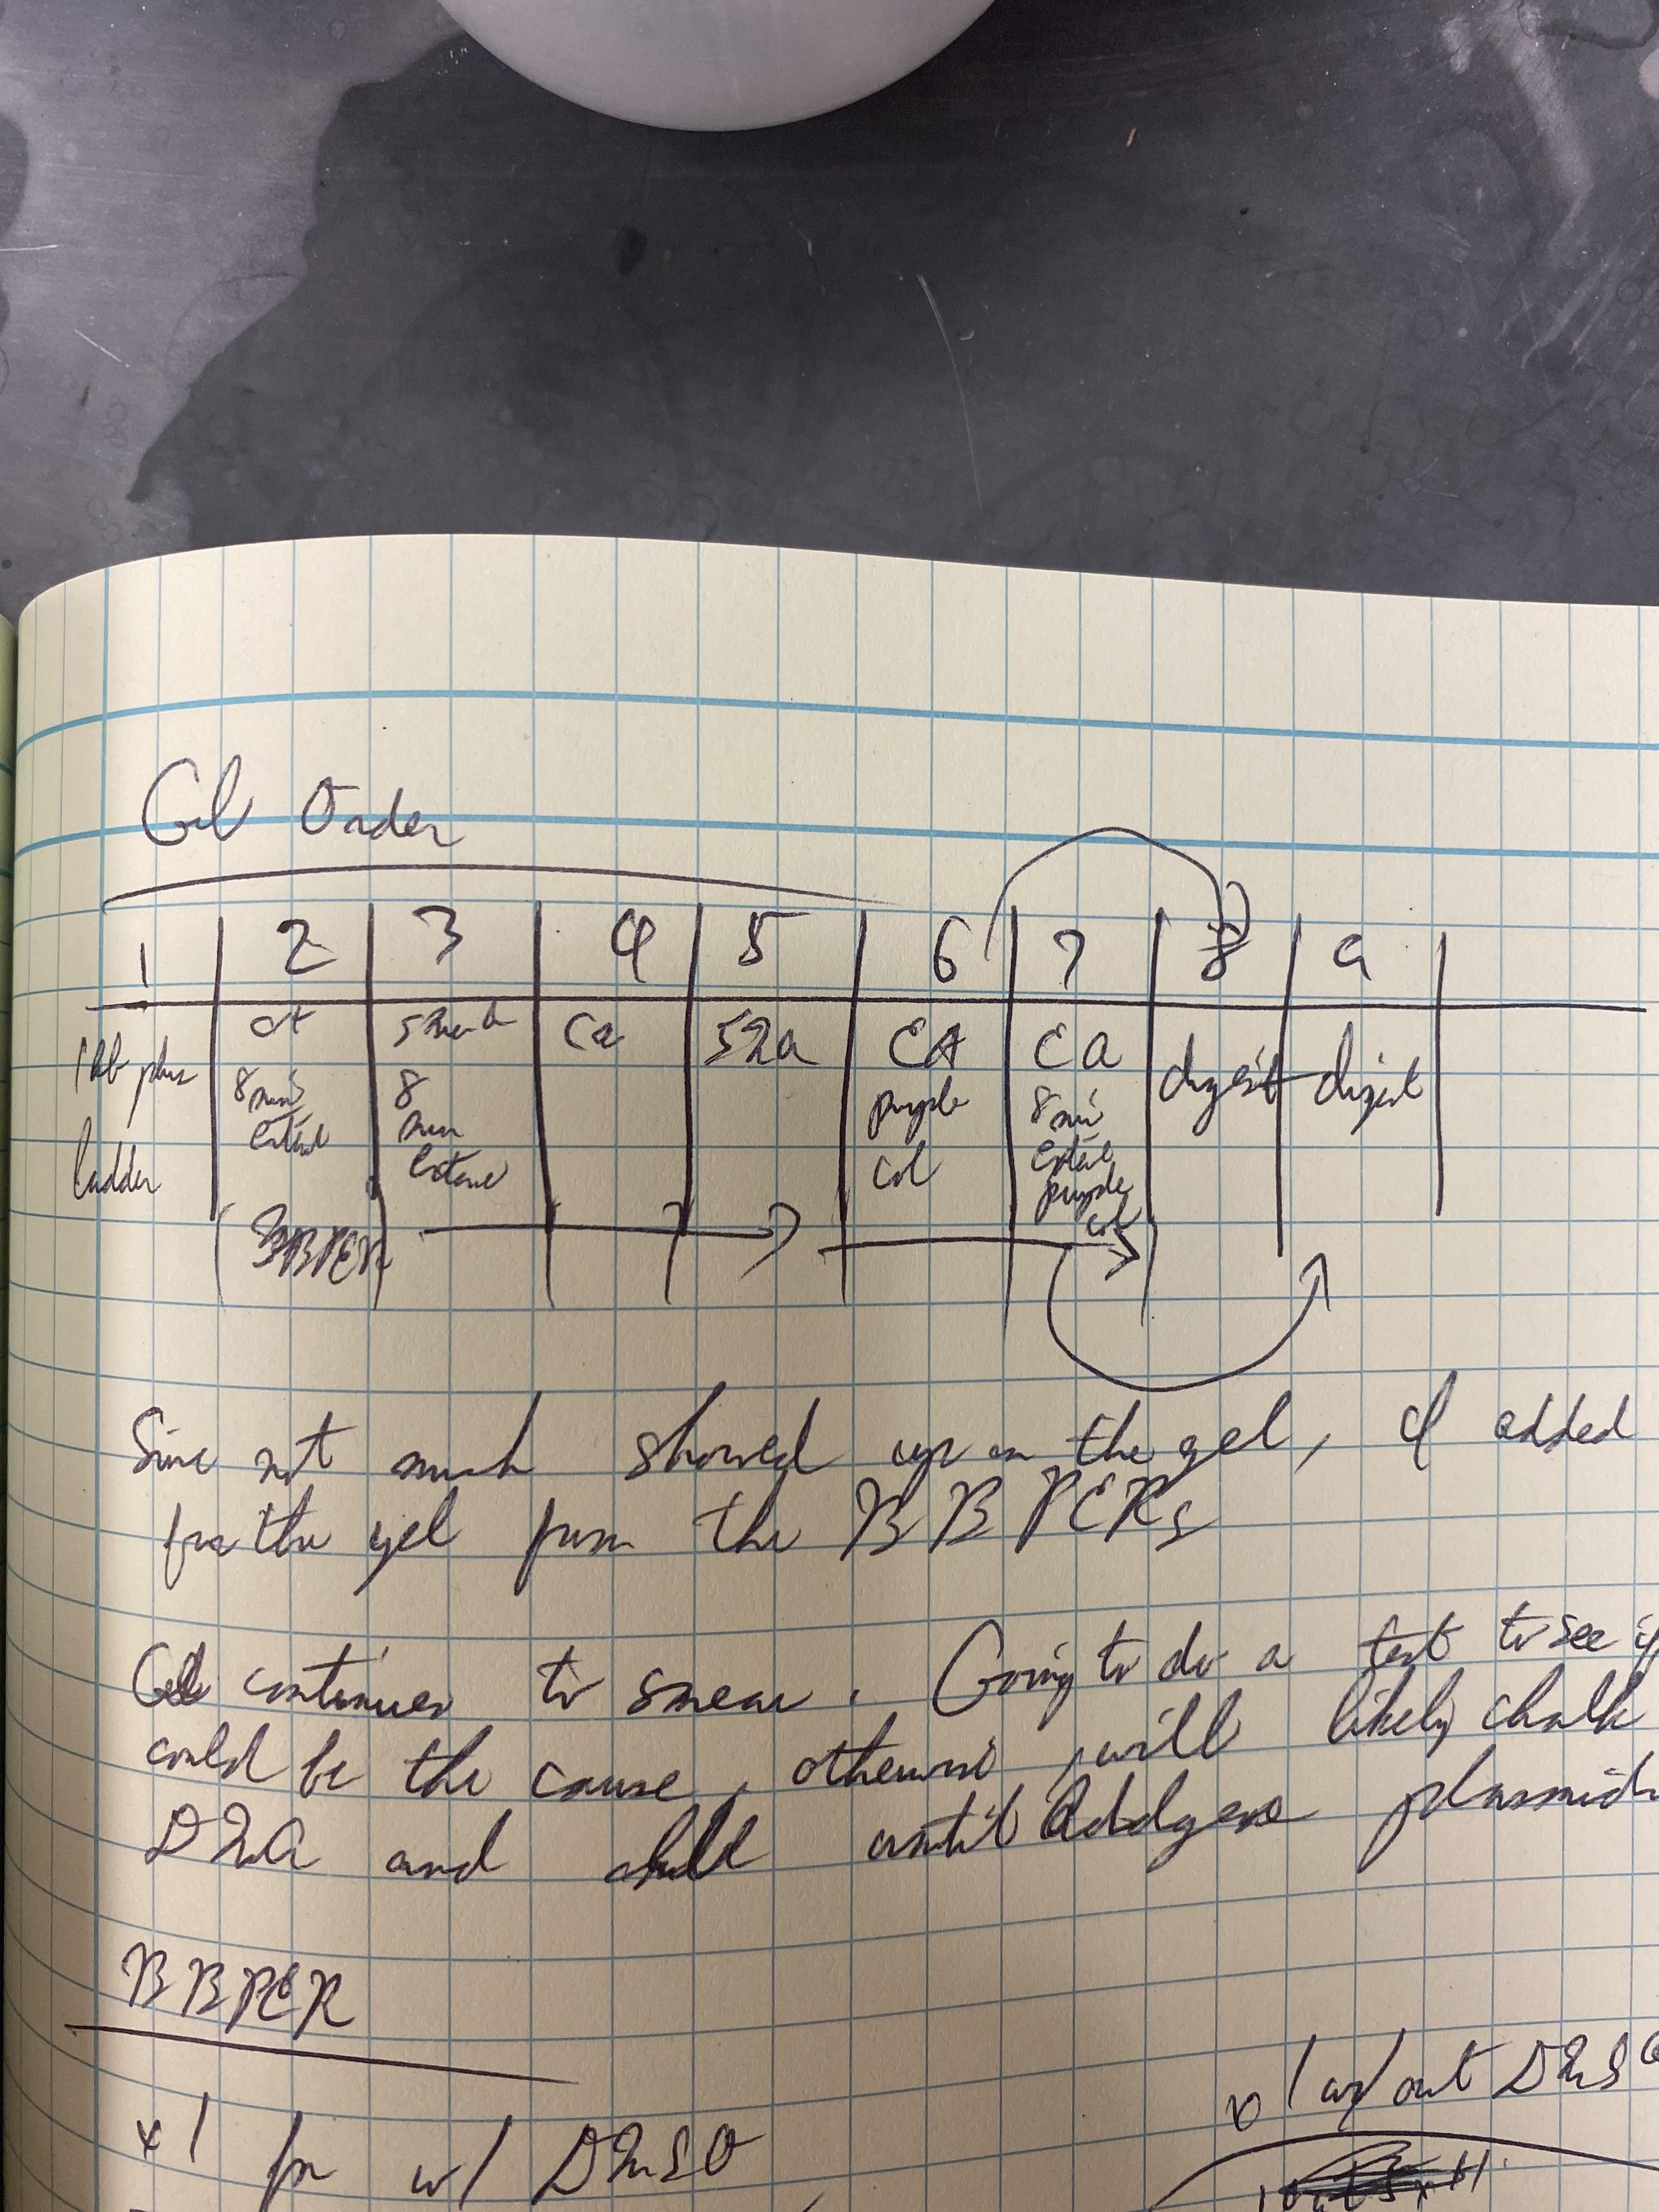 Gel Order
1 2 3 4 5 6 7 8 9
1kb plus ladder
8 min extend
8 min extend
Ca
52a
CA purple col
CA 8 min extend purple col
digest digest
BBPER
Since not much showed up on the gel, I added
the gel from the BBPERs
Gel continues to smear. Going to do a test to see if
could be the cause, otherwise, will likely chalk
and until Addgene plasmid
BBPER
x1 for w/ DMSO
x1 w/out DMSO